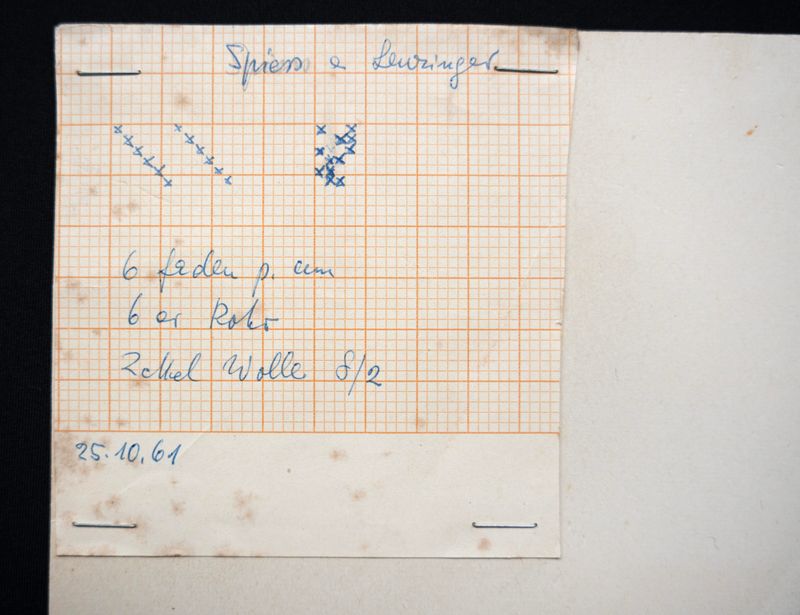 Spiess a
6 faden p. cm
6 er Rohr
Wolle 8/2
25.10.61